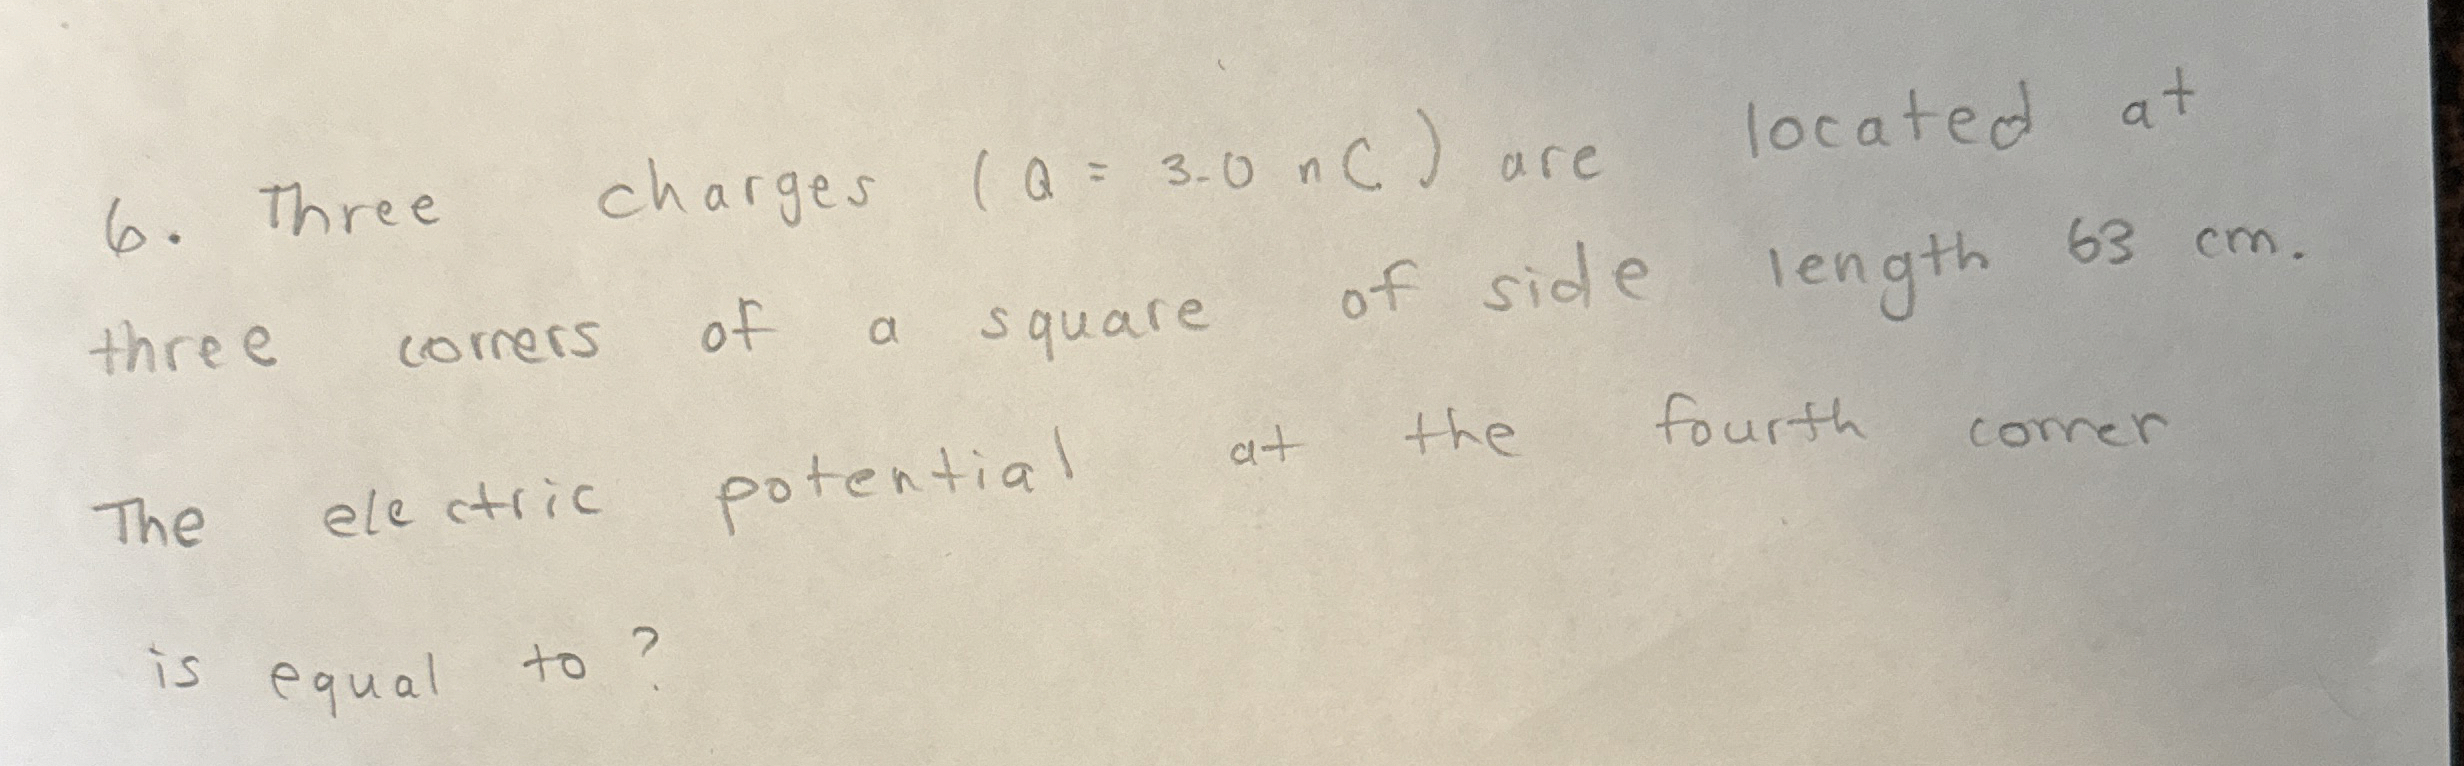 6. Three charges (Q = 3.0 nC) are located at
three corners of a square of side length 63 cm.
The electric potential at the fourth corner
is equal to?